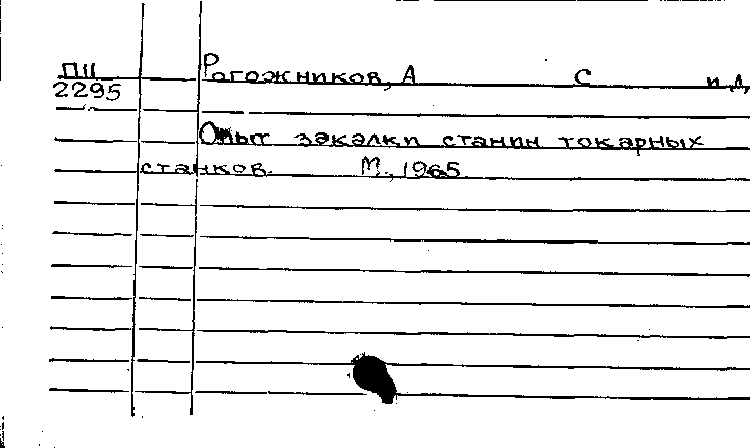 ПII Рогожников, А С и д,
2295
Опыт закалки станин токарных
станков. М., 1965